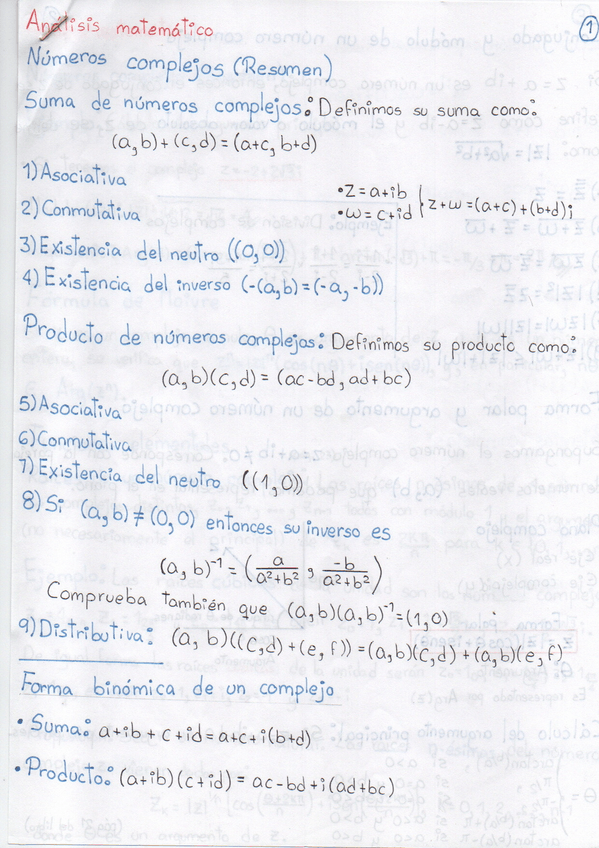 Análisis matemático
1
Números complejos (Resumen)
Suma de números complejos: Definimos su suma como:
(a,b)+(c,d)=(a+c,b+d)
1) Asociativa
•z=a+ib
•ω=c+id } z+ω=(a+c)+(b+d)i
2) Conmutativa
3) Existencia del neutro ((0,0))
4) Existencia del inverso (-(a,b)=(-a,-b))
Producto de números complejos: Definimos su producto como:
(a,b)(c,d)=(ac-bd,ad+bc)
5) Asociativa
6) Conmutativa
7) Existencia del neutro ((1,0))
8) Si (a,b)≠(0,0) entonces su inverso es
(a,b)⁻¹=(a/(a²+b²), -b/(a²+b²))
Comprueba también que (a,b)(a,b)⁻¹=(1,0)
9) Distributiva: (a,b)((c,d)+(e,f))=(a,b)(c,d)+(a,b)(e,f)
Forma binómica de un complejo
• Suma: a+ib+c+id=a+c+i(b+d)
• Producto: (a+ib)(c+id)=ac-bd+i(ad+bc)